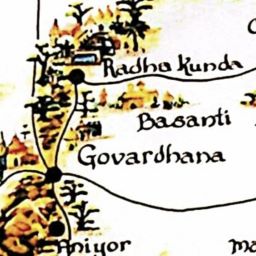 Radha Kunda
Basanti
Govardhana
Aniyor